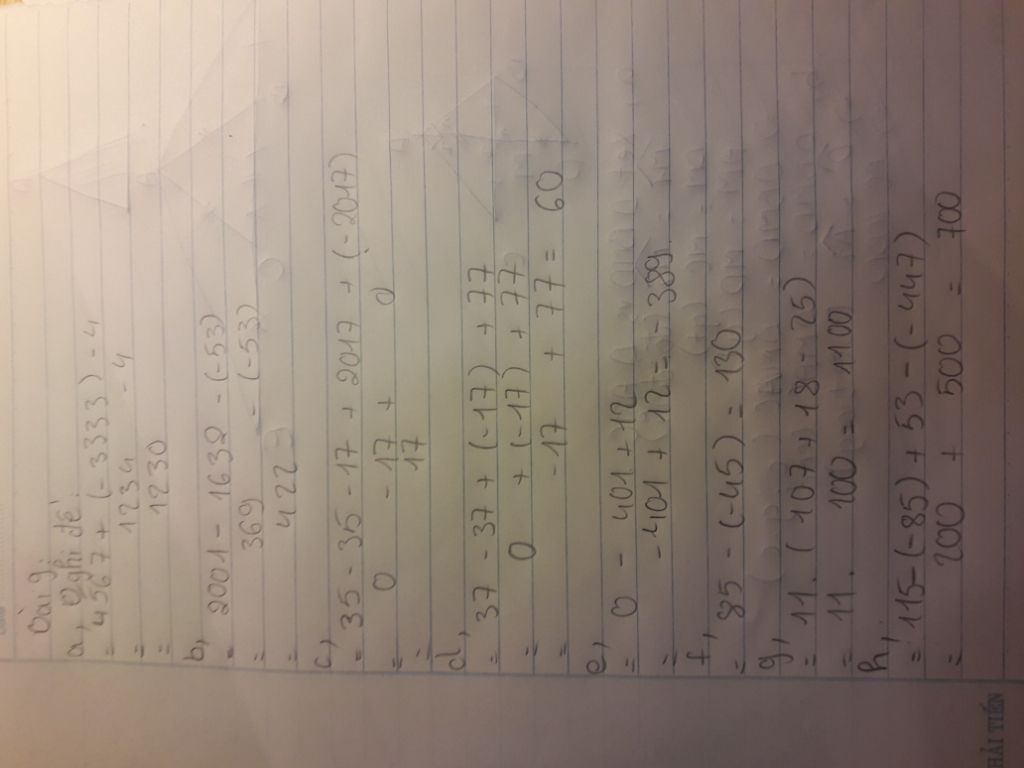 Bài 9
a, Ghi đề:
= 4567 + (-3333) - 4
= 1234 - 4
= 1230
b,
= 2001 - 1632 - (-53)
= 369 - (-53)
= 422
c,
= 35 - 35 - 17 + 2017 + (-2017)
= 0 - 17 + 0
= 17
d,
= 37 - 37 + (-17) + 77
= 0 + (-17) + 77
= -17 + 77 = 60
e,
= 0 - 401 + 12
= -401 + 12 = -389
f,
= 85 - (-45) = 130
g,
= 11. (107 + 18 - 25)
= 11. 100 = 1100
h,
= 115 - (-85) + 53 - (-447)
= 200 + 500 = 700
HẢI TIẾN